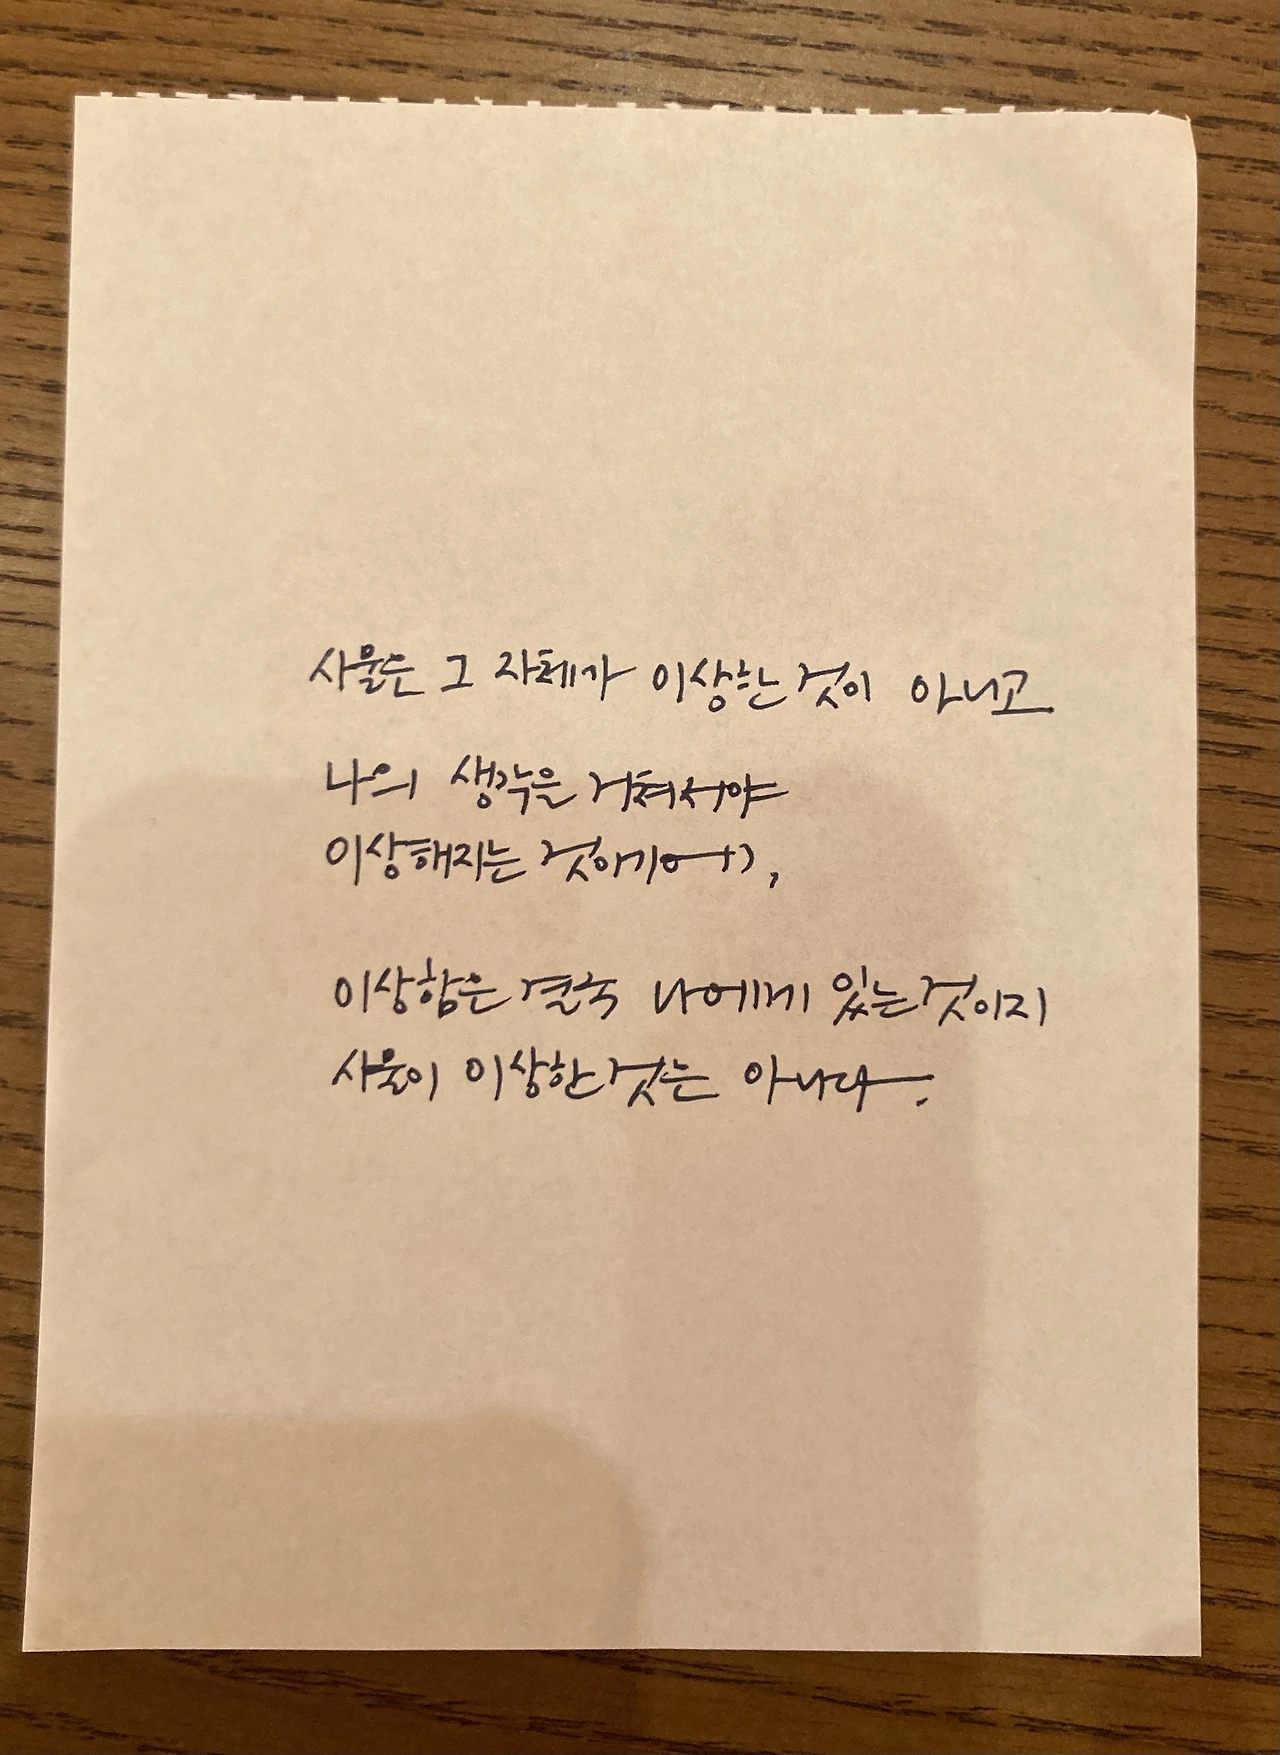 사물은 그 자체가 이상한 것이 아니고
나의 생각을 거쳐서야
이상해지는 것이기에,
이상함은 결국 나에게 있는 것이지
사물이 이상한 것은 아니다.